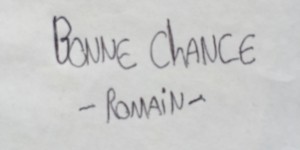 BONNE CHANCE
- ROMAIN -